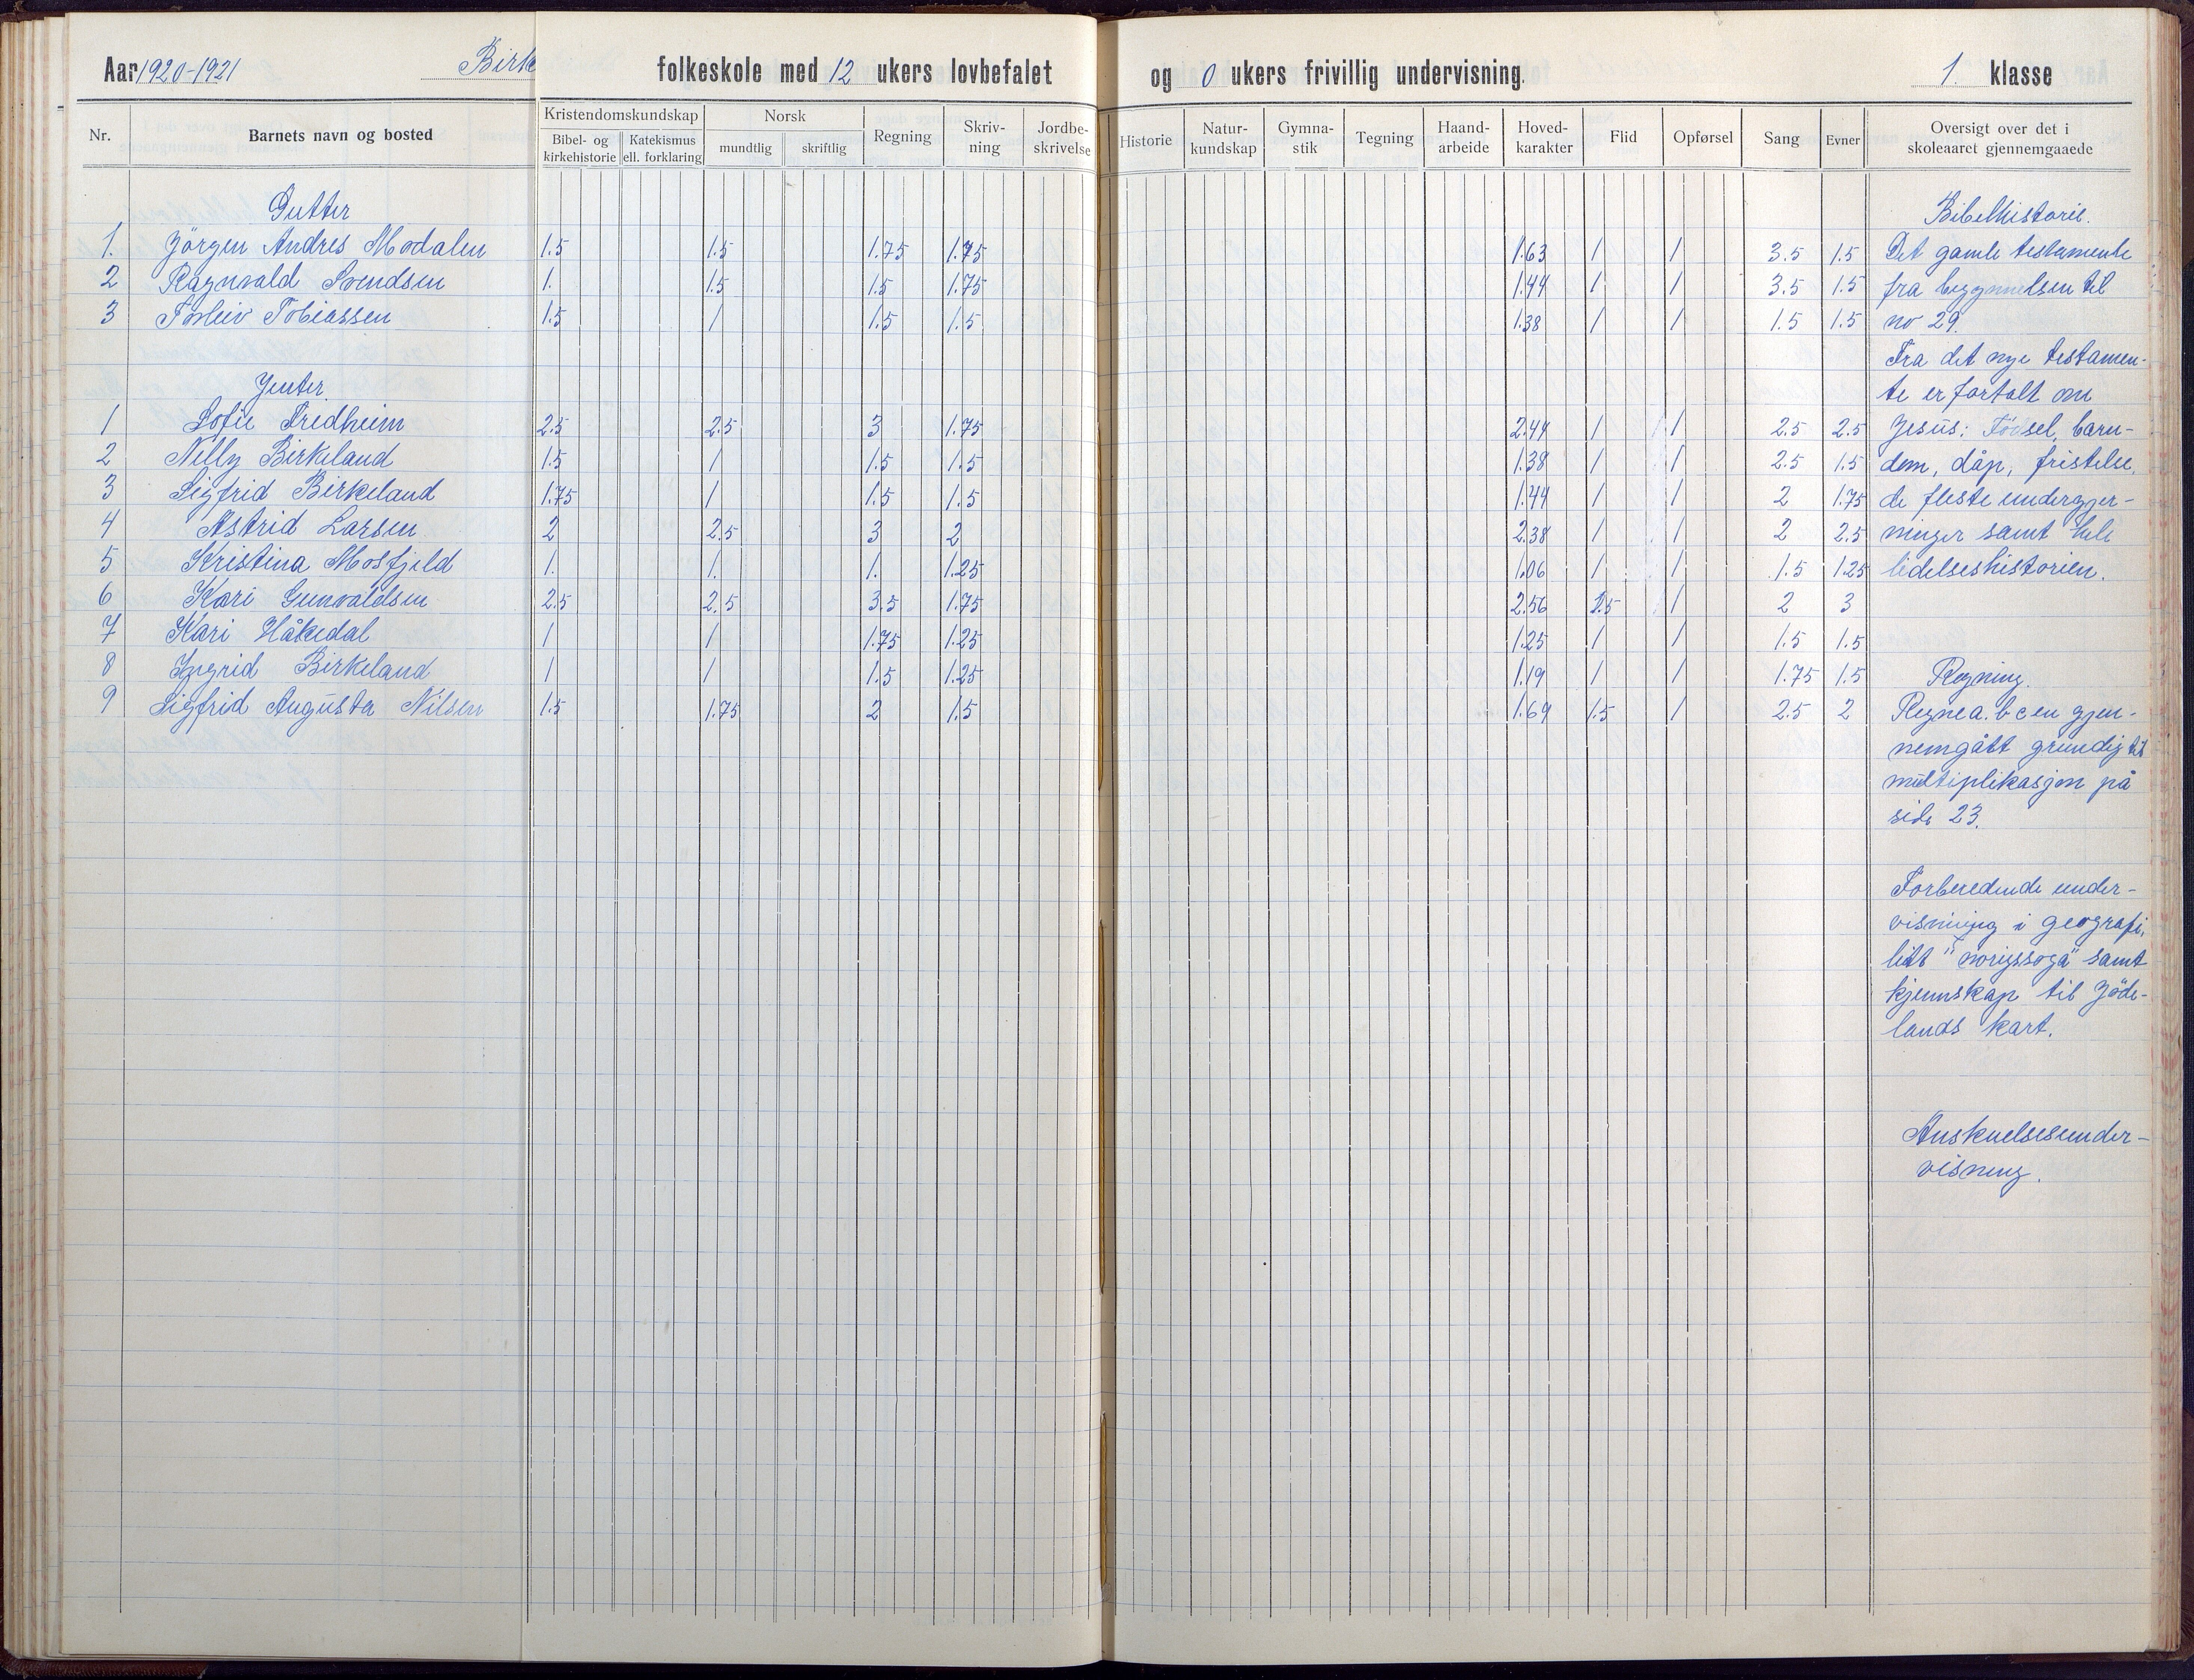 Aar 1920-1921 Birk folkeskole med 12 ukers lovbefalet og 0 ukers frivillig undervisning. 1. klasse
Nr. Barnets navn og bosted Kristendomskundskap Bibel- og kirkehistorie Katekismus ell. forklaring Norsk mundtlig skriftlig Regning Skriv-ning Jordbe-skrivelse Historie Natur-kundskap Gymna-stik Tegning Haand-arbeide Hoved-karakter Flid Opførsel Sang Evner Oversigt over det i skoleaaret gjennemgaaede
Gutter Bibelhistorie.
1. Jörgen Andres Modalen 1.5 1.5 1.75 1.75 1.63 1 1 3.5 1.5 Det gamle testamente
2 Ragnvald Svendsen 1. 1.5 1.5 1.75 1.44 1 1 3.5 1.5 fra begynnelsen til
3 Torleiv Tobiassen 1.5 1 1.5 1.5 1.38 1 1 1.5 1.5 no 29.
Fra det nye testamen-
Jenter. te er fortalt om
1 Sofie Fredheim 2.5 2.5 3 1.75 2.44 1 1 2.5 2.5 Jesus: Födsel, barn-
2 Nelly Birkeland 1.5 1 1.5 1.5 1.38 1 1 2.5 1.5 dom, dåp, fristelse,
3 Sigfrid Birkeland 1.75 1 1.5 1.5 1.44 1 1 2 1.75 de fleste undergjer-
4 Astrid Larsen 2 2.5 3 2 2.38 1 1 2 2.5 ninger samt hele
5 Kristina Mosfjeld 1. 1. 1. 1.25 1.06 1 1 1.5 1.25 lidelseshistorien.
6 Kari Gunvaldsen 2.5 2.5 3.5 1.75 2.56 1.5 1 2 3
7 Kari Håkedal 1 1 1.75 1.25 1.25 1 1 1.5 1.5
8 Ingrid Birkeland 1 1 1.5 1.25 1.19 1 1 1.75 1.5 Regning.
9 Sigfrid Augusta Nilsen 1.5 1.75 2 1.5 1.69 1.5 1 2.5 2 Regne a. b c en gjen-
nemgått grundig til
multiplikasjon på
side 23.
Forberedende under-
visning i geografi,
litt "norigssoga" samt
kjennskap til Jöde-
lands kart.
Anskuelsesunder-
visning.